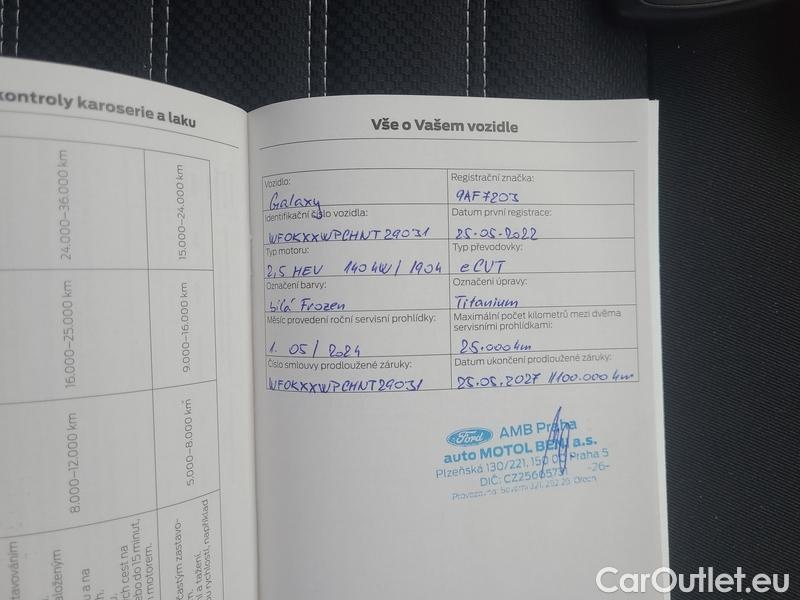 kontroly karoserie a laku
24.000–36.000 km
15.000–24.000 km
16.000–25.000 km
9.000–16.000 km
8.000–12.000 km
5.000–8.000 km
Vše o Vašem vozidle
Vozidlo:
Galaxy
Registrační značka:
9AF7203
Identifikační číslo vozidla:
WF0KXXWPCHNT29031
Datum první registrace:
25.05.2022
Typ motoru:
2,5 HEV 140 kW / 190k
Typ převodovky:
eCVT
Označení barvy:
bílá Frozen
Označení úpravy:
Titanium
Měsíc provedení roční servisní prohlídky:
1. 05/2024
Maximální počet kilometrů mezi dvěma
servisními prohlídkami:
25.000km
Číslo smlouvy prodloužené záruky:
WF0KXXWPCHNT29031
Datum ukončení prodloužené záruky:
25.05.2027 //100.000km
Ford AMB Praha
auto MOTOL BENI a.s.
Plzeňská 130/221, 150 00 Praha 5
DIČ: CZ25665731 -26-
CarOutlet.eu